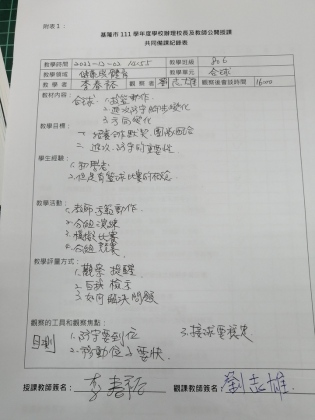 附表1：
基隆市 111 學年度學校辦理校長及教師公開授課
共同備課紀錄表
教學時間 2022-12-02 10:55 教學班級 806
教學領域 健康與體育 教學單元 合球
教學者 李春裕 觀察者 劉志雄 觀察後會談時間 16:00
教材內容：
合球：1. 攻當動作
2. 進攻、防守的步變化
3. 方向變化
教學目標：
1. 培養合作默契、團隊配合
2. 進攻、防守的重要性
學生經驗：
1. 初學者
2. 但是有籃球比賽的概念
教學活動：
1. 老師示範動作
2. 分組演練
3. 模擬比賽
4. 分組競賽
教學評量方式：
1. 觀察、提醒
2. 自我檢示
3. 如何臨決問題
觀察的工具和觀察焦點：
目測 1. 防守要到位 3. 接球要穩定
2. 移動位子要快
授課教師簽名：李春裕 觀課教師簽名：劉志雄